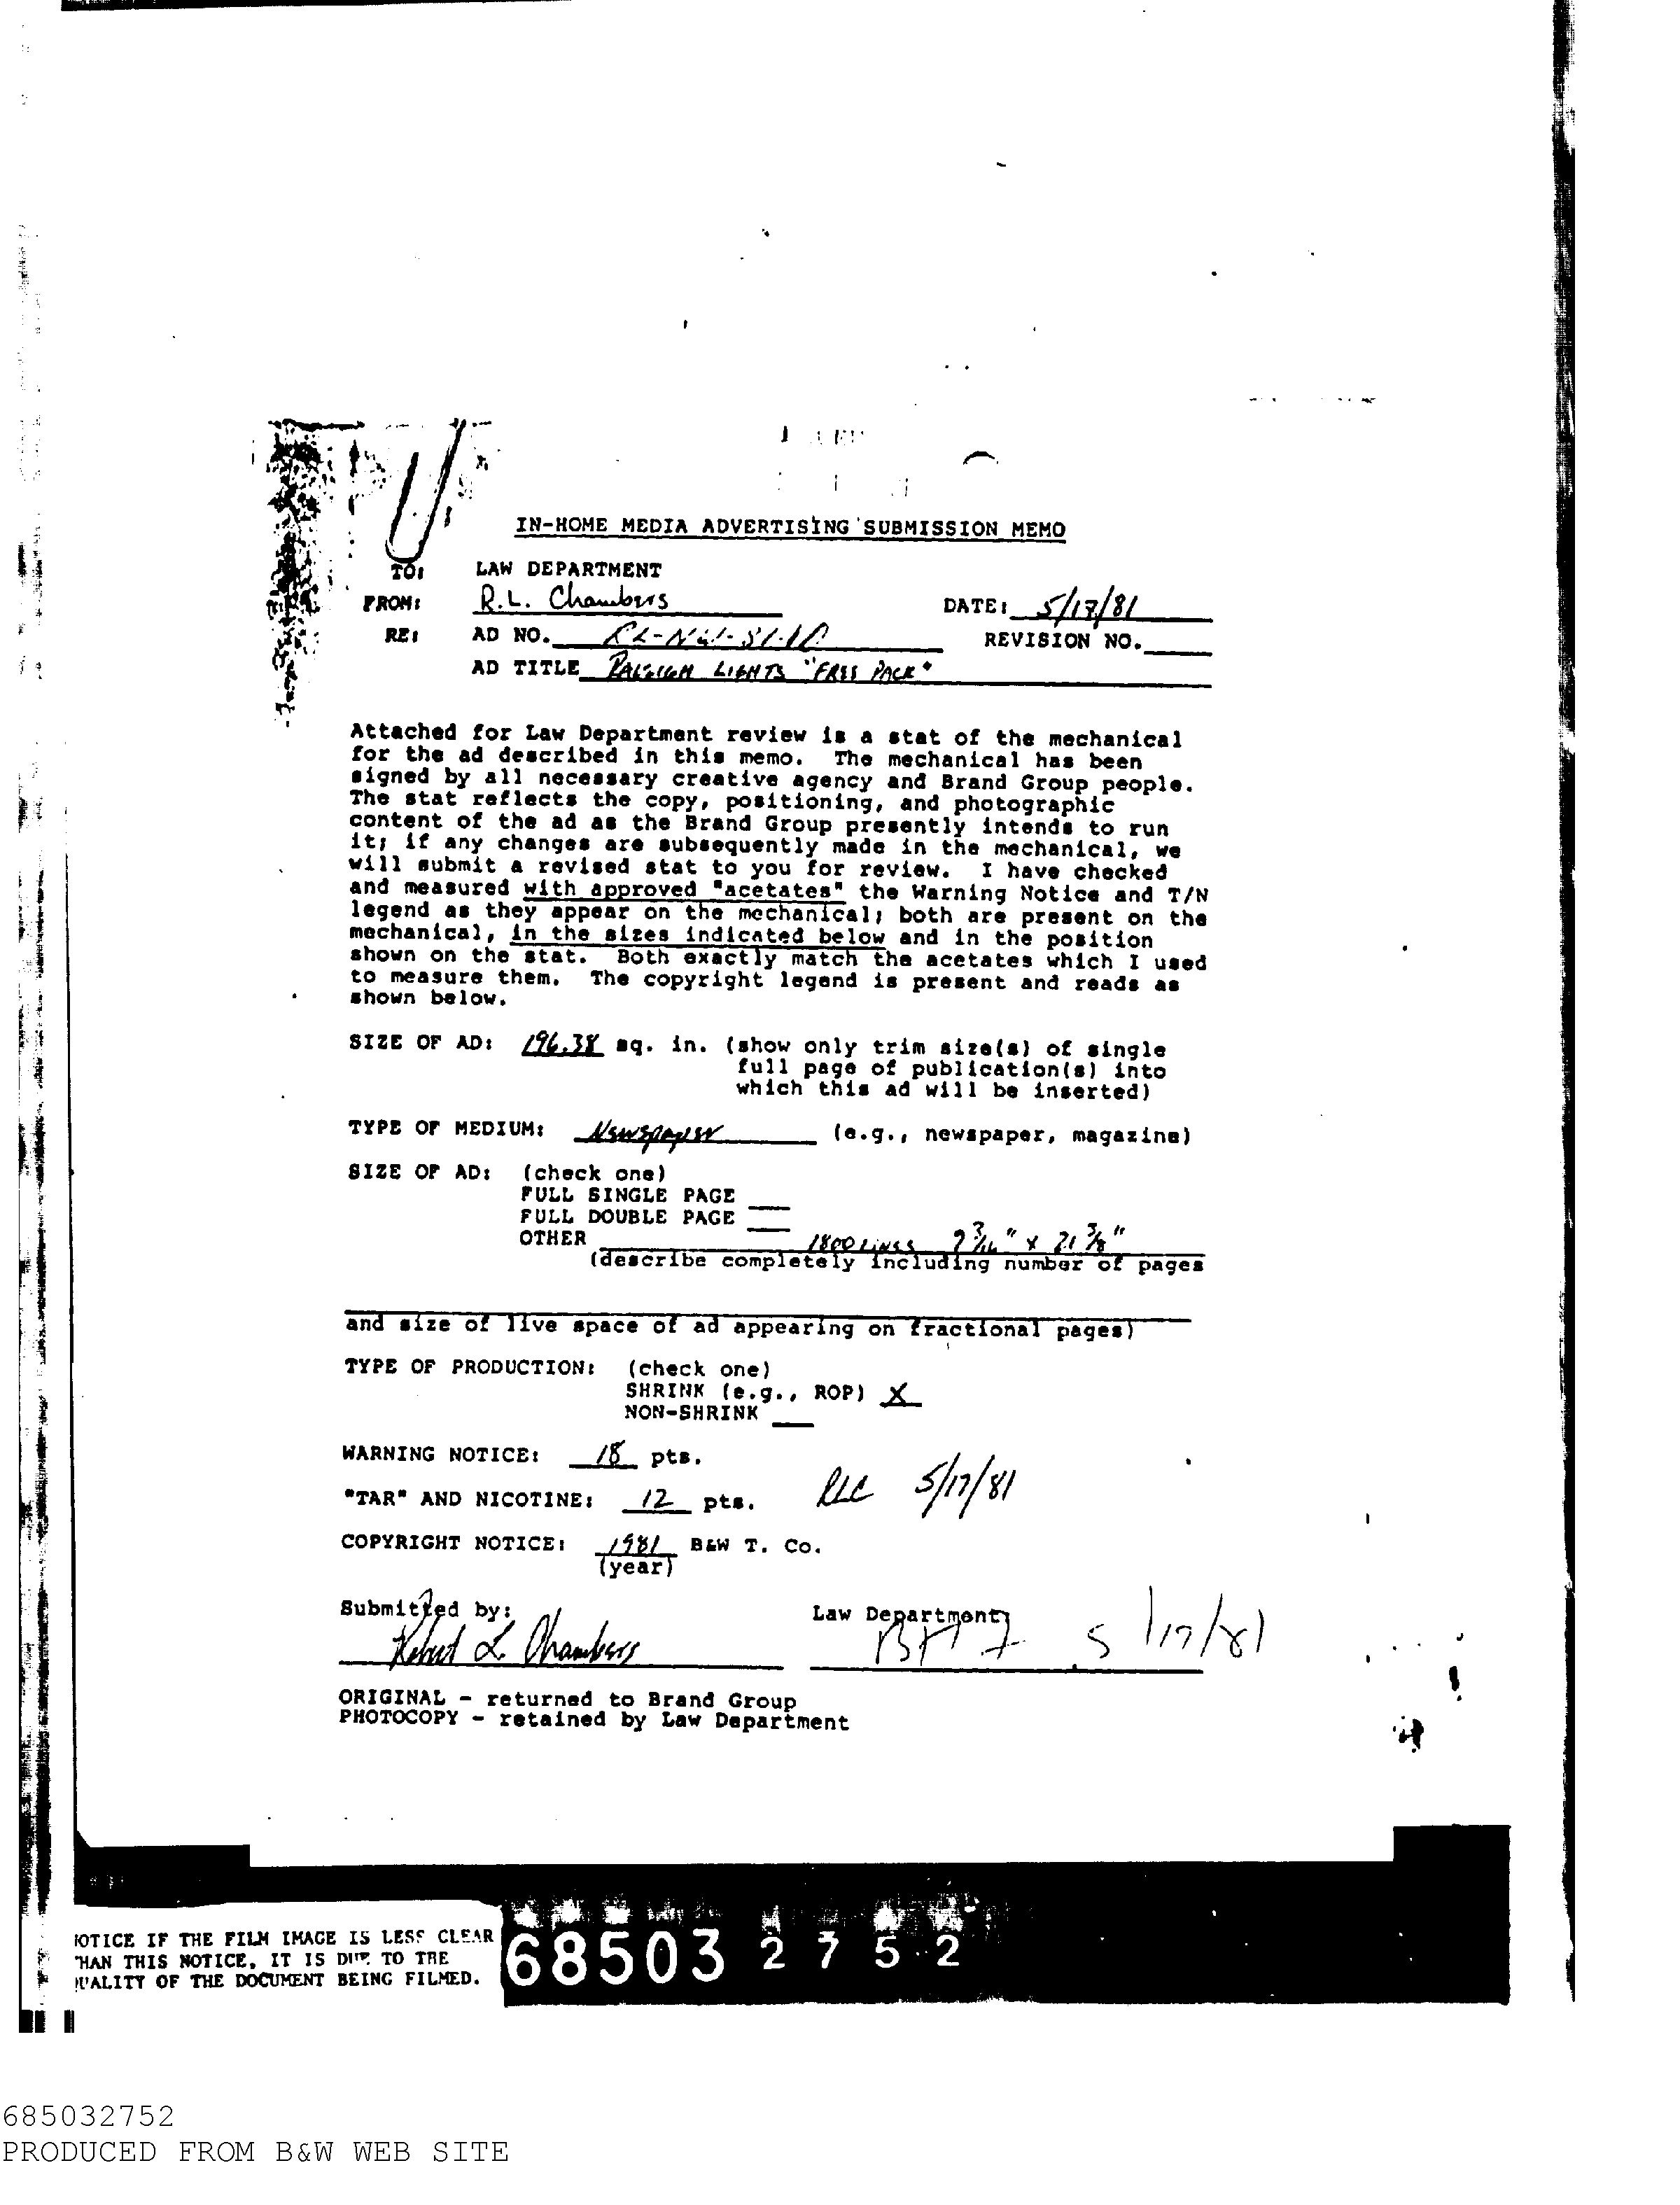 IN-HOME MEDIA ADVERTISING SUBMISSION MEMO
TO: LAW DEPARTMENT
FROM: R.L. Chambers DATE: 5/17/81
RE: AD NO. REVISION NO.
AD TITLE RALEIGH LIGHTS "FREE PACK"
Attached for Law Department review is a stat of the mechanical
for the ad described in this memo. The mechanical has been
signed by all necessary creative agency and Brand Group people.
The stat reflects the copy, positioning, and photographic
content of the ad as the Brand Group presently intends to run
it; if any changes are subsequently made in the mechanical, we
will submit a revised stat to you for review. I have checked
and measured with approved "acetates" the Warning Notice and T/N
legend as they appear on the mechanical; both are present on the
mechanical, in the sizes indicated below and in the position
shown on the stat. Both exactly match the acetates which I used
to measure them. The copyright legend is present and reads as
shown below.
SIZE OF AD: 196.38 sq. in. (show only trim size(s) of single
full page of publication(s) into
which this ad will be inserted)
TYPE OF MEDIUM: Newspaper (e.g., newspaper, magazine)
SIZE OF AD: (check one)
FULL SINGLE PAGE
FULL DOUBLE PAGE
OTHER 1800 LINES 9 3/16" x 21 3/8"
(describe completely including number of pages
and size of live space of ad appearing on fractional pages)
TYPE OF PRODUCTION: (check one)
SHRINK (e.g., ROP) X
NON-SHRINK
WARNING NOTICE: 18 pts.
RLC 5/17/81
"TAR" AND NICOTINE: 12 pts.
COPYRIGHT NOTICE: 1981 B&W T. Co.
(year)
Submitted by: Law Department:
Robert L. Chambers 5/17/81
ORIGINAL - returned to Brand Group
PHOTOCOPY - retained by Law Department
NOTICE IF THE FILM IMAGE IS LESS CLEAR
THAN THIS NOTICE, IT IS DUE TO THE
QUALITY OF THE DOCUMENT BEING FILMED.
68503 2752
685032752
PRODUCED FROM B&W WEB SITE